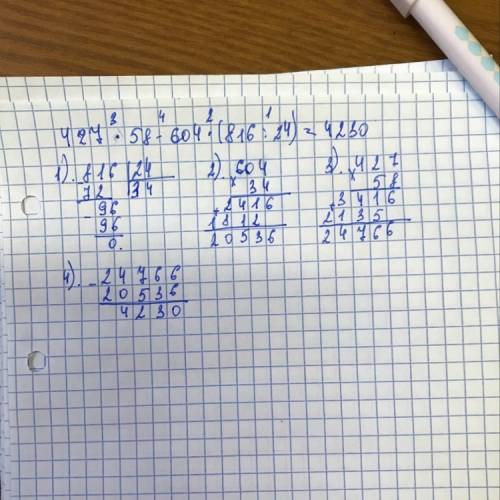 427 · 58 - 604 · (816 : 24) = 4230
3 4 2 1
1). 816 24
72 34
- 96
96
0.
2). 604
× 34
+ 2416
1812
20536
3). × 427
58
+ 3416
2135
24766
4). - 24766
20536
4230